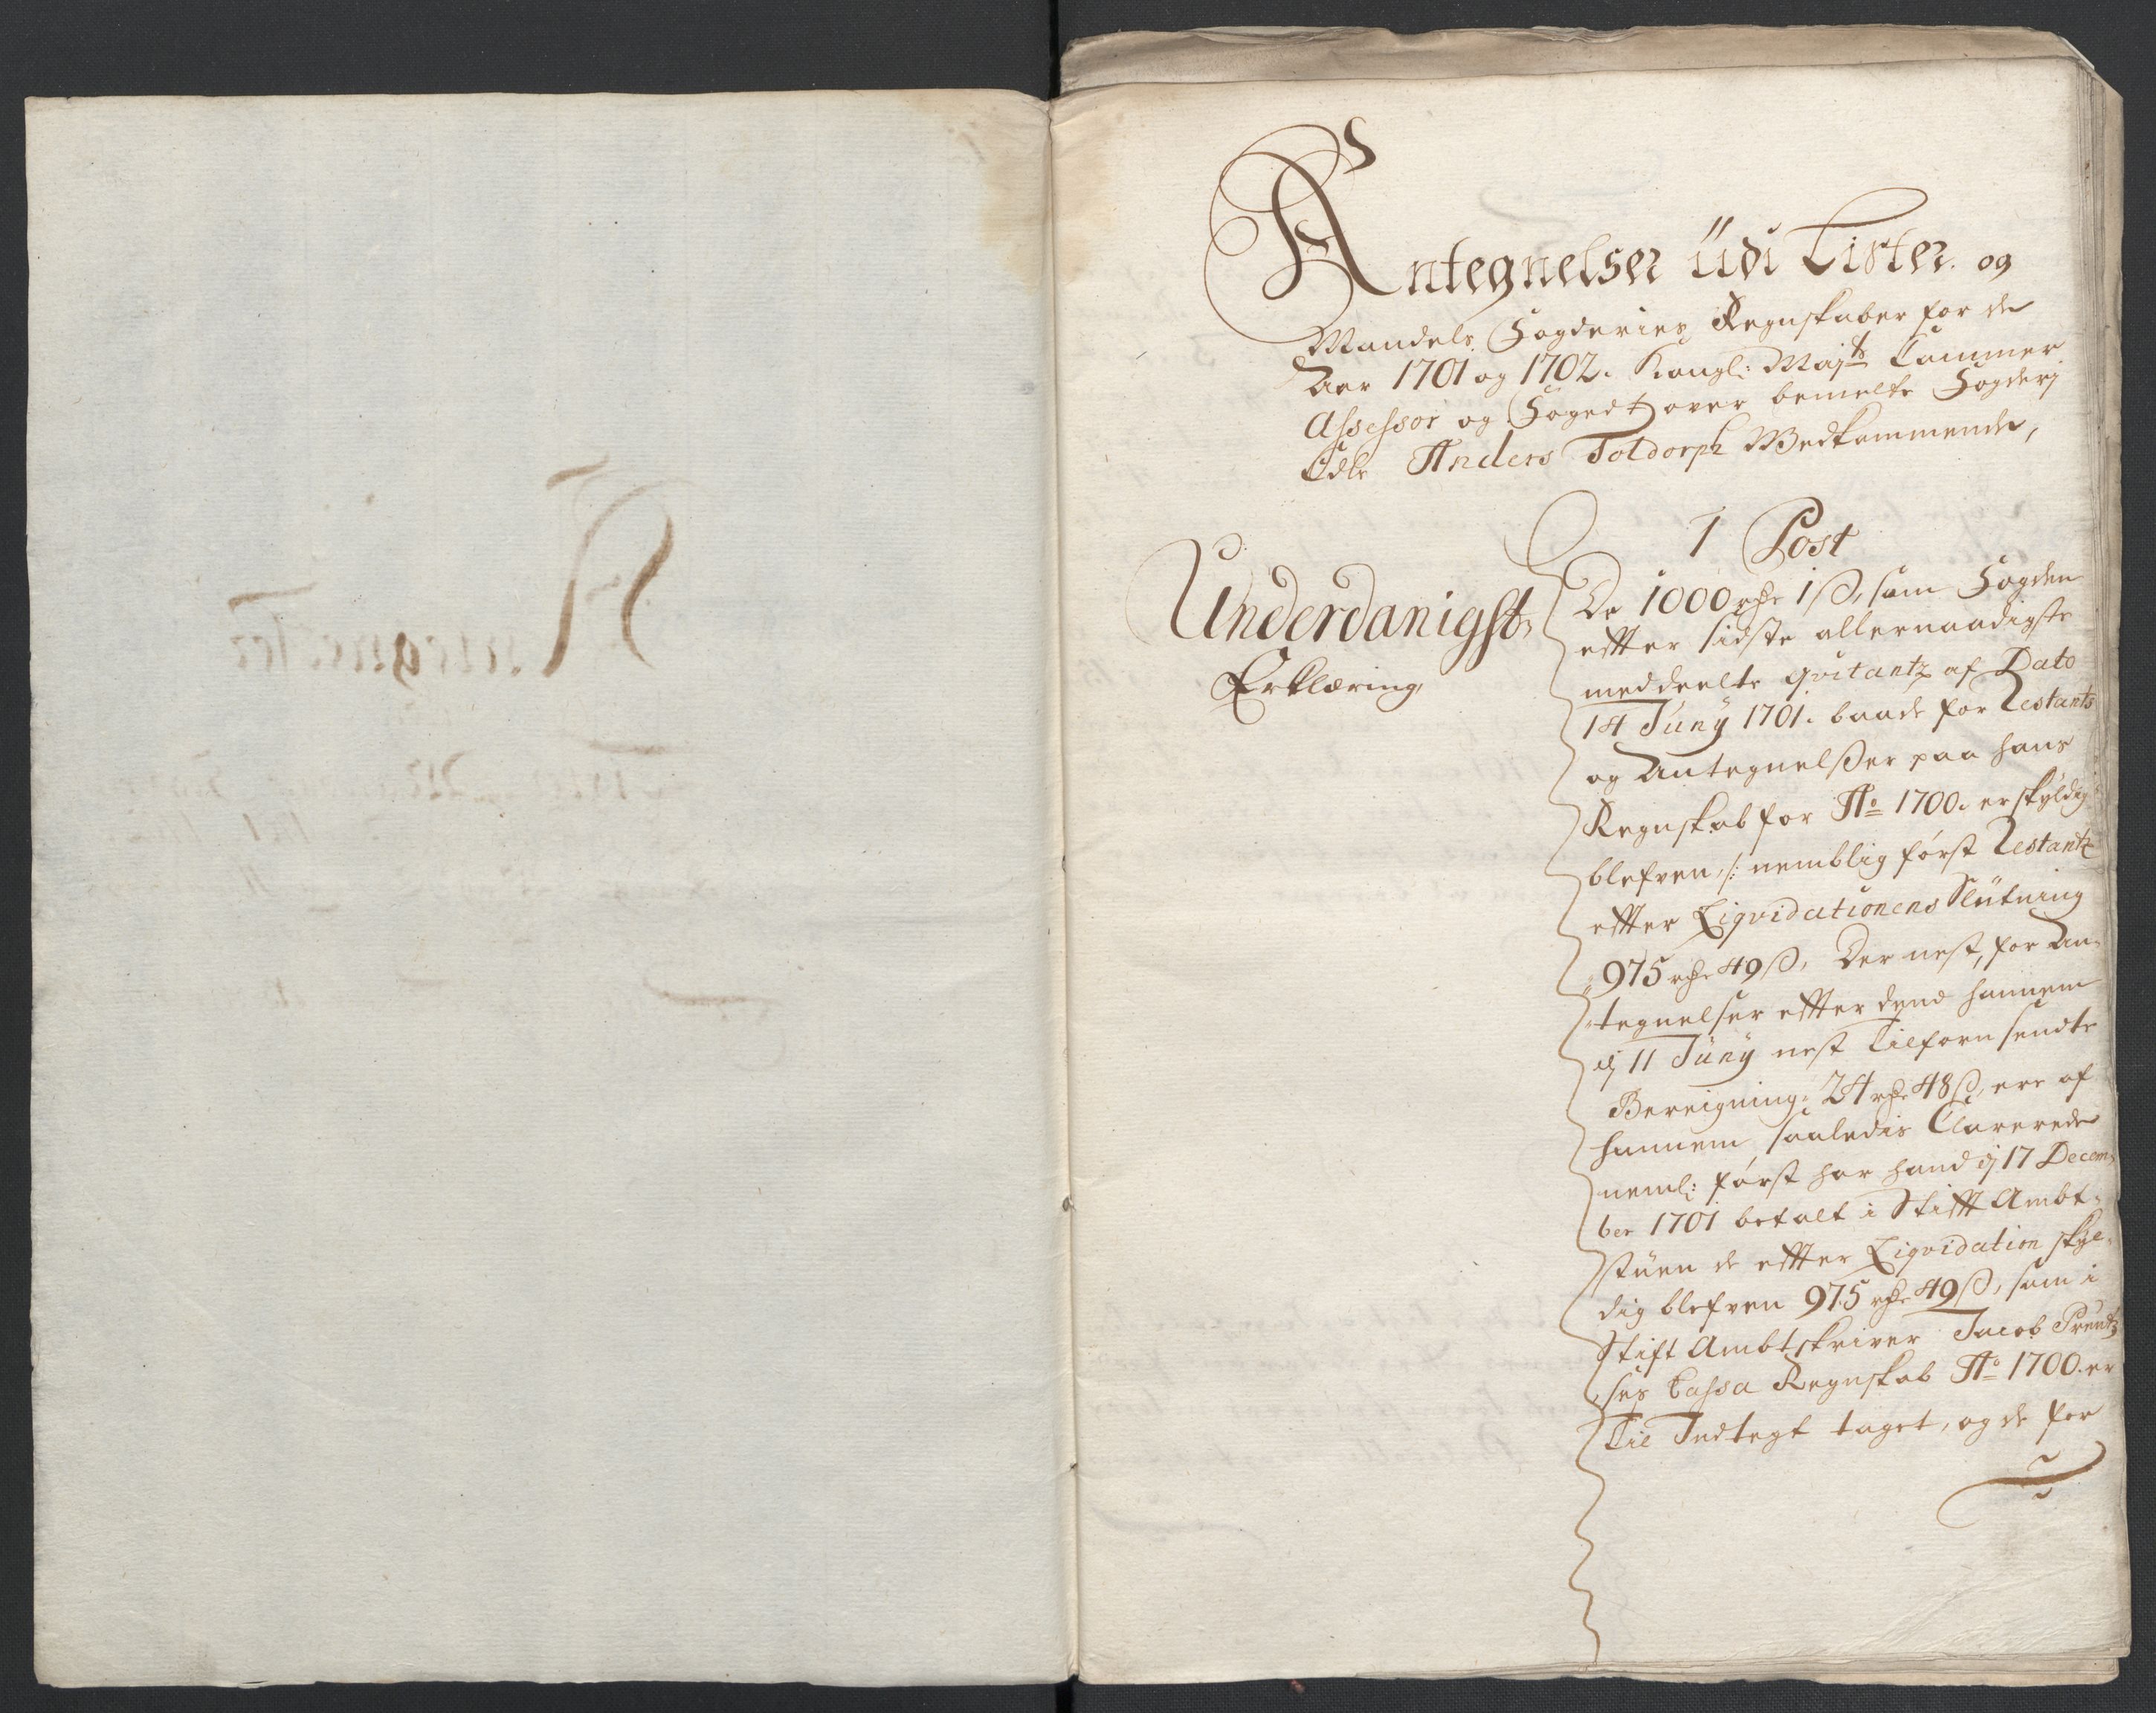 Antegnelser udi Lister og
Mandals Fogderies Regnskaber for de
Aar 1701 og 1702. Kongl: Majts Cammer
Assessor og Foged over bemelte Fogderj
Edle Anders Toldorph Vedkommende,
1 Post
Underdanigst
Erklæring
De 1000 rdr 1 ß, som Fogden
effter sidste allernaadigste
meddeelte qvitantz af Dato
14 Junÿ 1701. baade for Restants
og Antegnelßer paa hans
Regnskab for Ao 1700. er skÿldig
blefven, /: nemblig først Restantz
effter Liqvidationens Slutning
975 rdr 49 ß, Der nest, for An-
tegnelser effter dend hannem
11 Junÿ nest tilforn sendte
Bereigning, 24 rdr 48 ß, ere af
hannem saaledis Clarerede
neml: først har hand 17 Decem-
ber 1701 betalt i Stifft Ambt-
stuen de effter Liqvidation skÿl-
dig blefven 975 rdr 49 ß, som i
Stift Ambtskriver Jacob
ses Cassa Regnskab Ao 1700. er
til Indtegt taget, og de for